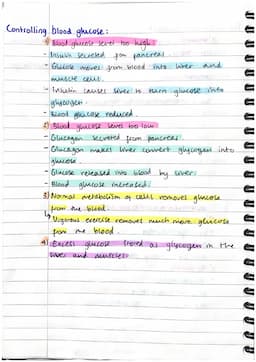 Controlling blood glucose:
1) Blood glucose level too high:
- Insulin secreted from pancreas.
- Glucose moves from blood into liver and
muscle cells.
- Insulin causes liver to turn glucose into
glycogen.
- Blood glucose reduced.
2) Blood glucose level too low:
- Glucagon secreted from pancreas.
- Glucagon makes liver convert glycogen into
glucose.
- Glucose released into blood by liver.
- Blood glucose increased.
3) Normal metabolism of cells removes glucose
from the blood.
↳ Vigorous exercise removes much more glucose
from the blood.
4) Excess glucose stored as glycogen in the
liver and muscles.